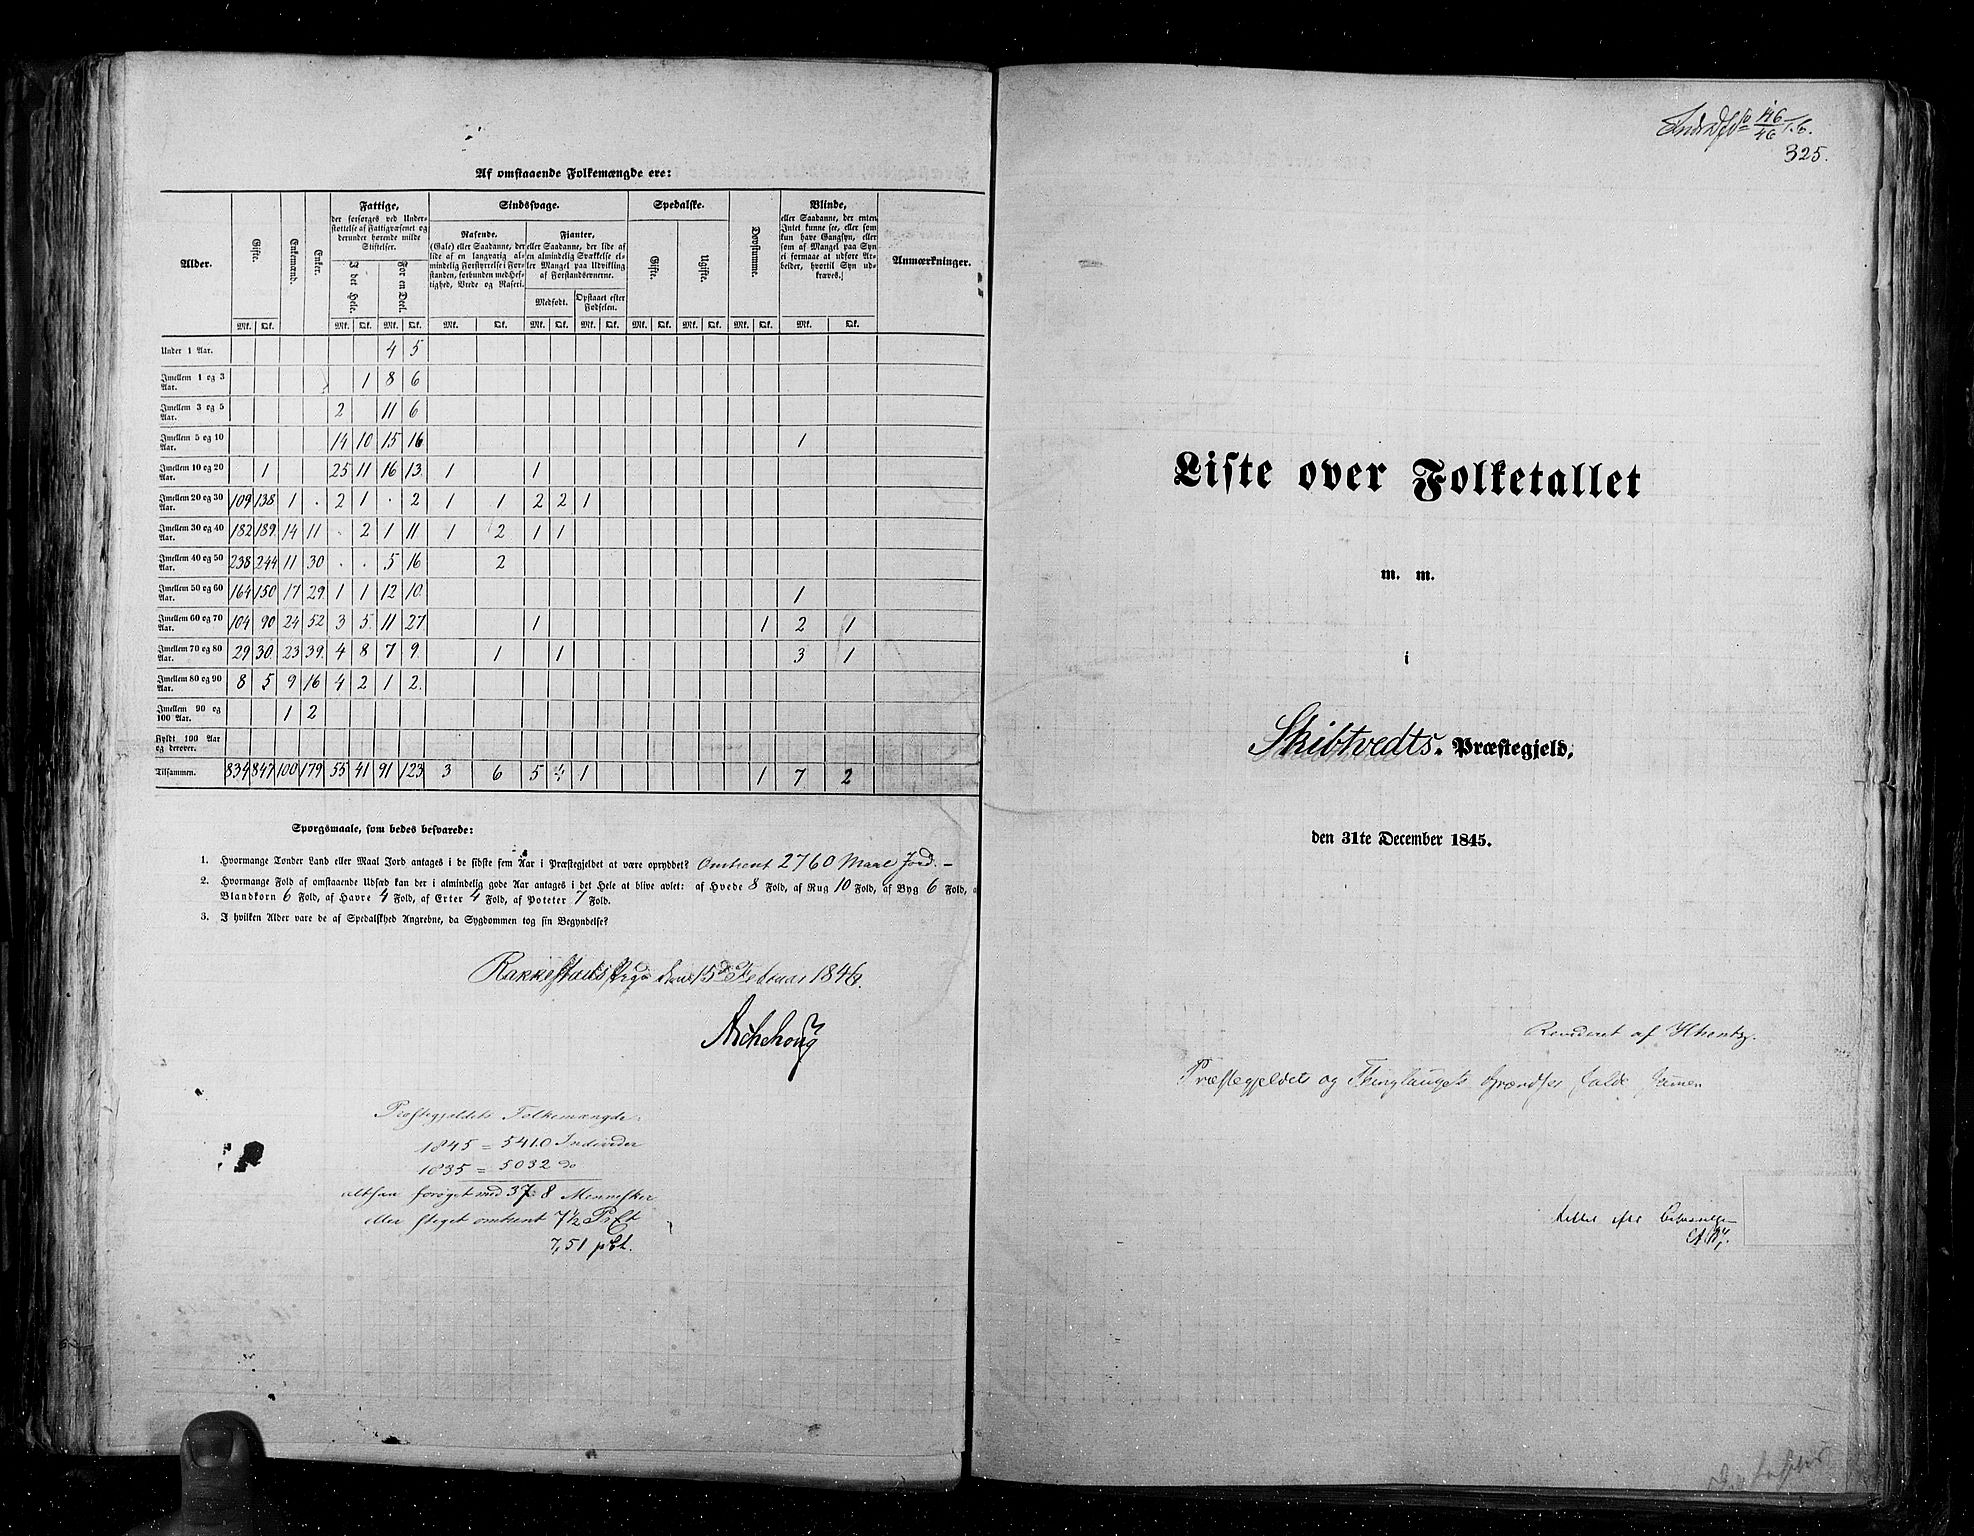 Af omstaaende Folkemængde ere:
Alder. Gifte. Enkemænd. Enker. Fattige, der forsørges ved Understøttelse af Fattigvæsenet og derunder hørende milde Stiftelser. Sindssvage. Spedalske. Døvstumme. Blinde, eller Saadanne, der enten Intet kunne see, eller som kun have Gangsyn, eller som af Mangel paa Syn ei formaae at udføre Arbeider, hvortil Syn udkræves.) Anmærkninger.
I det Hele. For en Deel. Rasende. (Gale) eller Saadanne, der lide af en langvarig almindelig Forstyrrelse i Forstanden, forbunden med Heftighed, Vrede og Raseri. Fianter, eller Saadanne, der lide af en almindelig Svækkelse eller Mangel paa Udvikling af Forstandsevnerne. Gifte. Ugifte.
Medfødt. Opstaaet efter Fødselen.
Mk. Qk. Mk. Qk. Mk. Qk. Mk. Qk. Mk. Qk. Mk. Qk. Mk. Qk. Mk. Qk. Mk. Qk. Mk. Qk.
Under 1 Aar. 4 5
Imellem 1 og 3 Aar. 1 8 6
Imellem 3 og 5 Aar. 2 11 6
Imellem 5 og 10 Aar. 14 10 15 16 1
Imellem 10 og 20 Aar. 1 25 11 16 13. 1 1
Imellem 20 og 30 Aar. 109 138 1 . 2 1 . 2 1 1 2 2 1
Imellem 30 og 40 Aar. 182 189. 14 11 . 2 1 11. 1 2 1 1
Imellem 40 og 50 Aar. 238 244 11 30 . . 5 16 2
Imellem 50 og 60 Aar. 164 150 17 29 1 1 12 10. 1
Imellem 60 og 70 Aar. 104 90 24 52 3 5 11 27 1 1 2 1
Imellem 70 og 80 Aar. 29 30. 23 39. 4 8 7 9. 1 1 3 1
Imellem 80 og 90 Aar. 8 5 9 16 4 2 1 2.
Imellem 90 og 100 Aar. 1 2
Fyldt 100 Aar og derover.
Tilsammen. 834 847 100 179 55 41 91 123 3 6 5 4 1 1 7 2
Spørgsmaale, som bedes besvarede:
1. Hvormange Tønder Land eller Maal Jord antages i de sidste fem Aar i Præstegjeldet at være opryddet? Omtrent 2760 Maal Jord. -
2. Hvormange Fold af omstaaende Udsæd kan der i almindelig gode Aar antages i det Hele at blive avlet: af Hvede 8 Fold, af Rug 10 Fold, af Byg 6 Fold, a
Blandkorn 6 Fold, af Havre 4 Fold, af Erter 4 Fold, af Poteter 7 Fold.
3. I hvilken Alder vare de af Spedalskhed Angrebne, da Sygdommen tog sin Begyndelse?
Rakkestads Prgd den 15de Februar 1846.
Aschehoug
Præstegjeldets Folkemængde:
1845 = 5410 Individer
1835 = 5032 do
altsaa forøget med 378 Mennesker
eller steget omtrent 7½ PrCt
7,51 pCt.
146/46
325.
Liste over Folketallet
m. m.
i
Skibtvedts Præstegjeld,
den 31te December 1845.
Revideret af
Præstegjeldet og Thinglaugets Grændser falde sammen
Rettet efter Besvarelse